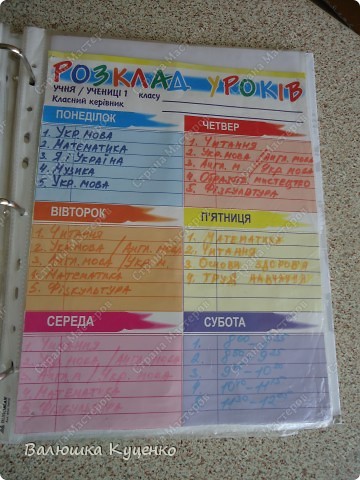 РОЗКЛАД УРОКІВ
УЧНЯ / УЧЕНИЦІ 1 класу
Класний керівник
ПОНЕДІЛОК
1. Укр. мова
2. Математика
3. Я і Україна
4. Музика
5. Укр. мова
ЧЕТВЕР
1. Читання
2. Укр. мова / Англ. мова
3. Англ. мова / Укр. мова
4. Образот. мистецтво
5. Фізкультура
ВІВТОРОК
1. Читання
2. Укр. мова / Англ. мова
3. Англ. мова / Укр. м.
4. Математика
5. Фізкультура
П'ЯТНИЦЯ
1. Математика
2. Читання
3. Основи здоров'я
4. Труд. навчання
СЕРЕДА
1. Читання
4. Математика
5. Фізкультура
СУБОТА
1.
2.
3.
4.
5.
Валюшка Куценко